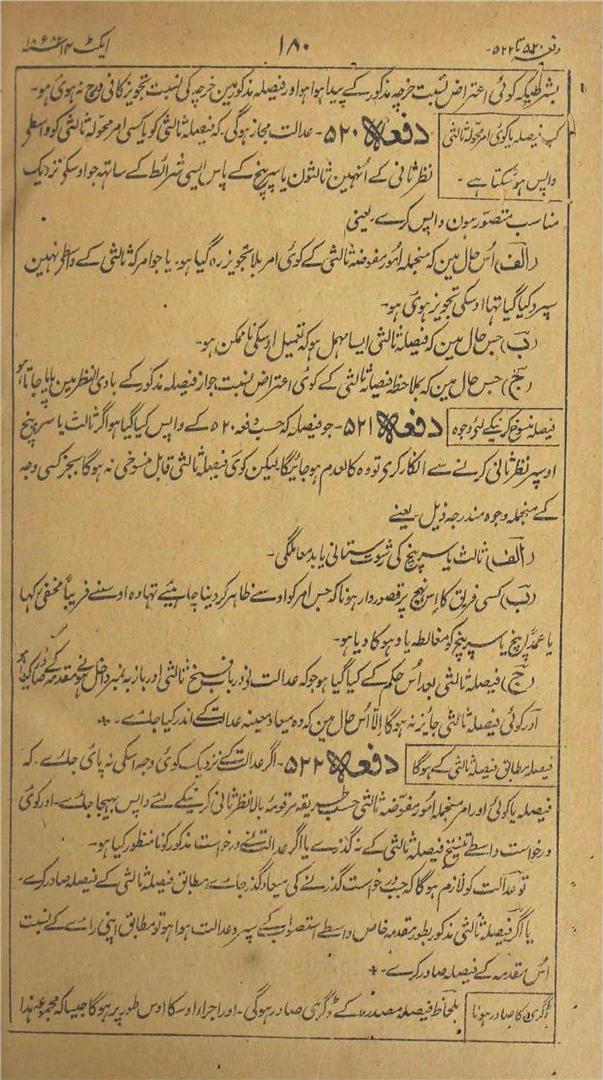 دفعہ ۵۲۰ تا ۵۲۲- ۱۸۰ ایکٹ ۱۴ ۱۸۸۲ء
بشرطیکہ کوئی اعتراض نسبت خرچہ مذکور کے پیدا ہوا ہو اور فیصلہ مذکور مین خرچہ کی نسبت تجویز کافی درج نہ ہوئی ہو-
کب فیصلہ یا کوئی امر محولہ ثالثی
واپس ہو سکتا ہے -
دفعہ ۵۲۰- عدالت مجاز ہوگی کہ فیصلہ ثالثی کو یا کسی امر محولہ ثالثی کو واسطے
نظر ثانی کے اُنہین ثالثون یا سرپنچ کے پاس ایسی شرائط کے ساتھ جو اوسکی نزدیک
مناسب متصور ہون واپس کرے یعنی
(الف) اُس حال مین کہ منجملہ امور مفوضہ ثالثی کے کوئی امر بلا تجویز رہ گیا ہو- یا جو امر کہ ثالثی کے واسطے نہین
سپرد کیا گیا تھا اوسکی تجویز ہوئی ہو-
(ب) جس حال مین کہ فیصلہ ثالثی ایسا مہمل ہو کہ تعمیل اوسکی ناممکن ہو-
(ج) جس حال مین کہ بملاحظہ فیصلہ ثالثی کے کوئی اعتراض نسبت جواز فیصلہ مذکور کے بادی النظر مین پایا جاتا ہو
فیصلہ منسوخ کرنیکے لئے وجوہ
دفعہ ۵۲۱- جو فیصلہ کہ حسب دفعہ ۵۲۰ کے واپس کیا گیا ہو اگر ثالث یا سرپنچ
اوسپر نظر ثانی کرنے سے انکار کری تو وہ کالعدم ہو جائیگا لیکن کوئی فیصلہ ثالثی قابل منسوخی نہ ہوگا بجز کسی وجہ
کے منجملہ وجوہ مندرجہ ذیل یعنے
(الف) ثالث یا سرپنچ کی رشوت ستانی یا بد معاملگی-
(ب) کسی فریق کا اس نہج پر قصور وار ہونا کہ جس امر کو اوسے ظاہر کر دینا چاہیئے تھا وہ اوسنے فریباً مخفی رکھا
یا عمداً پنچ یا سرپنچ کو مغالطہ یا دھوکا دیا ہو-
(ج) فیصلہ ثالثی بعد اُس حکم کے کیا گیا ہو جو کہ عدالت نے درباب فسخ ثالثی اور باز بہ نمبر داخل ہونے مقدمہ کے صادر کیا ہو
اور کوئی فیصلہ ثالثی جائز نہ ہوگا اِلّا اُس حال مین کہ وہ میعاد معینہ عدالت کے اندر کیا جائے-
فیصلہ مطابق فیصلہ ثالثی کے ہوگا
دفعہ ۵۲۲- اگر عدالت کے نزدیک کوئی وجہ اسکی نہ پائی جائے- کہ
فیصلہ یا کوئی اور امر منجملہ امور مفوضہ ثالثی حسب طریقہ مرقومہ بالا نظر ثانی کرنیکے لئے واپس بھیجا جائے- اور کوئی
درخواست واسطے تنسیخ فیصلہ ثالثی کے نہ گذرے یا اگر عدالت نے درخواست مذکور کو نامنظور کیا ہو-
تو عدالت کو لازم ہوگا کہ جب درخواست گذرنے کی میعاد گذر جائے مطابق فیصلہ ثالثی کے فیصلہ صادر کرے-
یا اگر فیصلہ ثالثی مذکور بطور مقدمہ خاص واسطے استصواب کے سپرد عدالت ہوا ہو تو مطابق اپنی رائے کے نسبت
اُس مقدمہ کے فیصلہ صادر کرے-
ڈگری کا صادر ہونا
بلحاظ فیصلہ مصدرہ کے ڈگری صادر ہوگی- اور اجراء اوسکا اوس طور پر ہوگا جیسا کہ مجموعہ ہذا